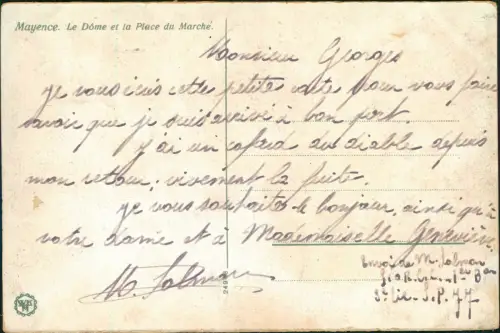 Mayence. Le Dôme et la Place du Marché.
Monsieur Georges
je vous écris cette petite carte pour vous faire
savoir que je suis arrivé à bon port.
j'ai un cafard du diable depuis
mon retour, vivement la fuite.
je vous souhaite le bonjour, ainsi qu'à
votre dame et à Mademoiselle Geneviève
M. Salman
Envoi de M. Salman
S.P. 77
249